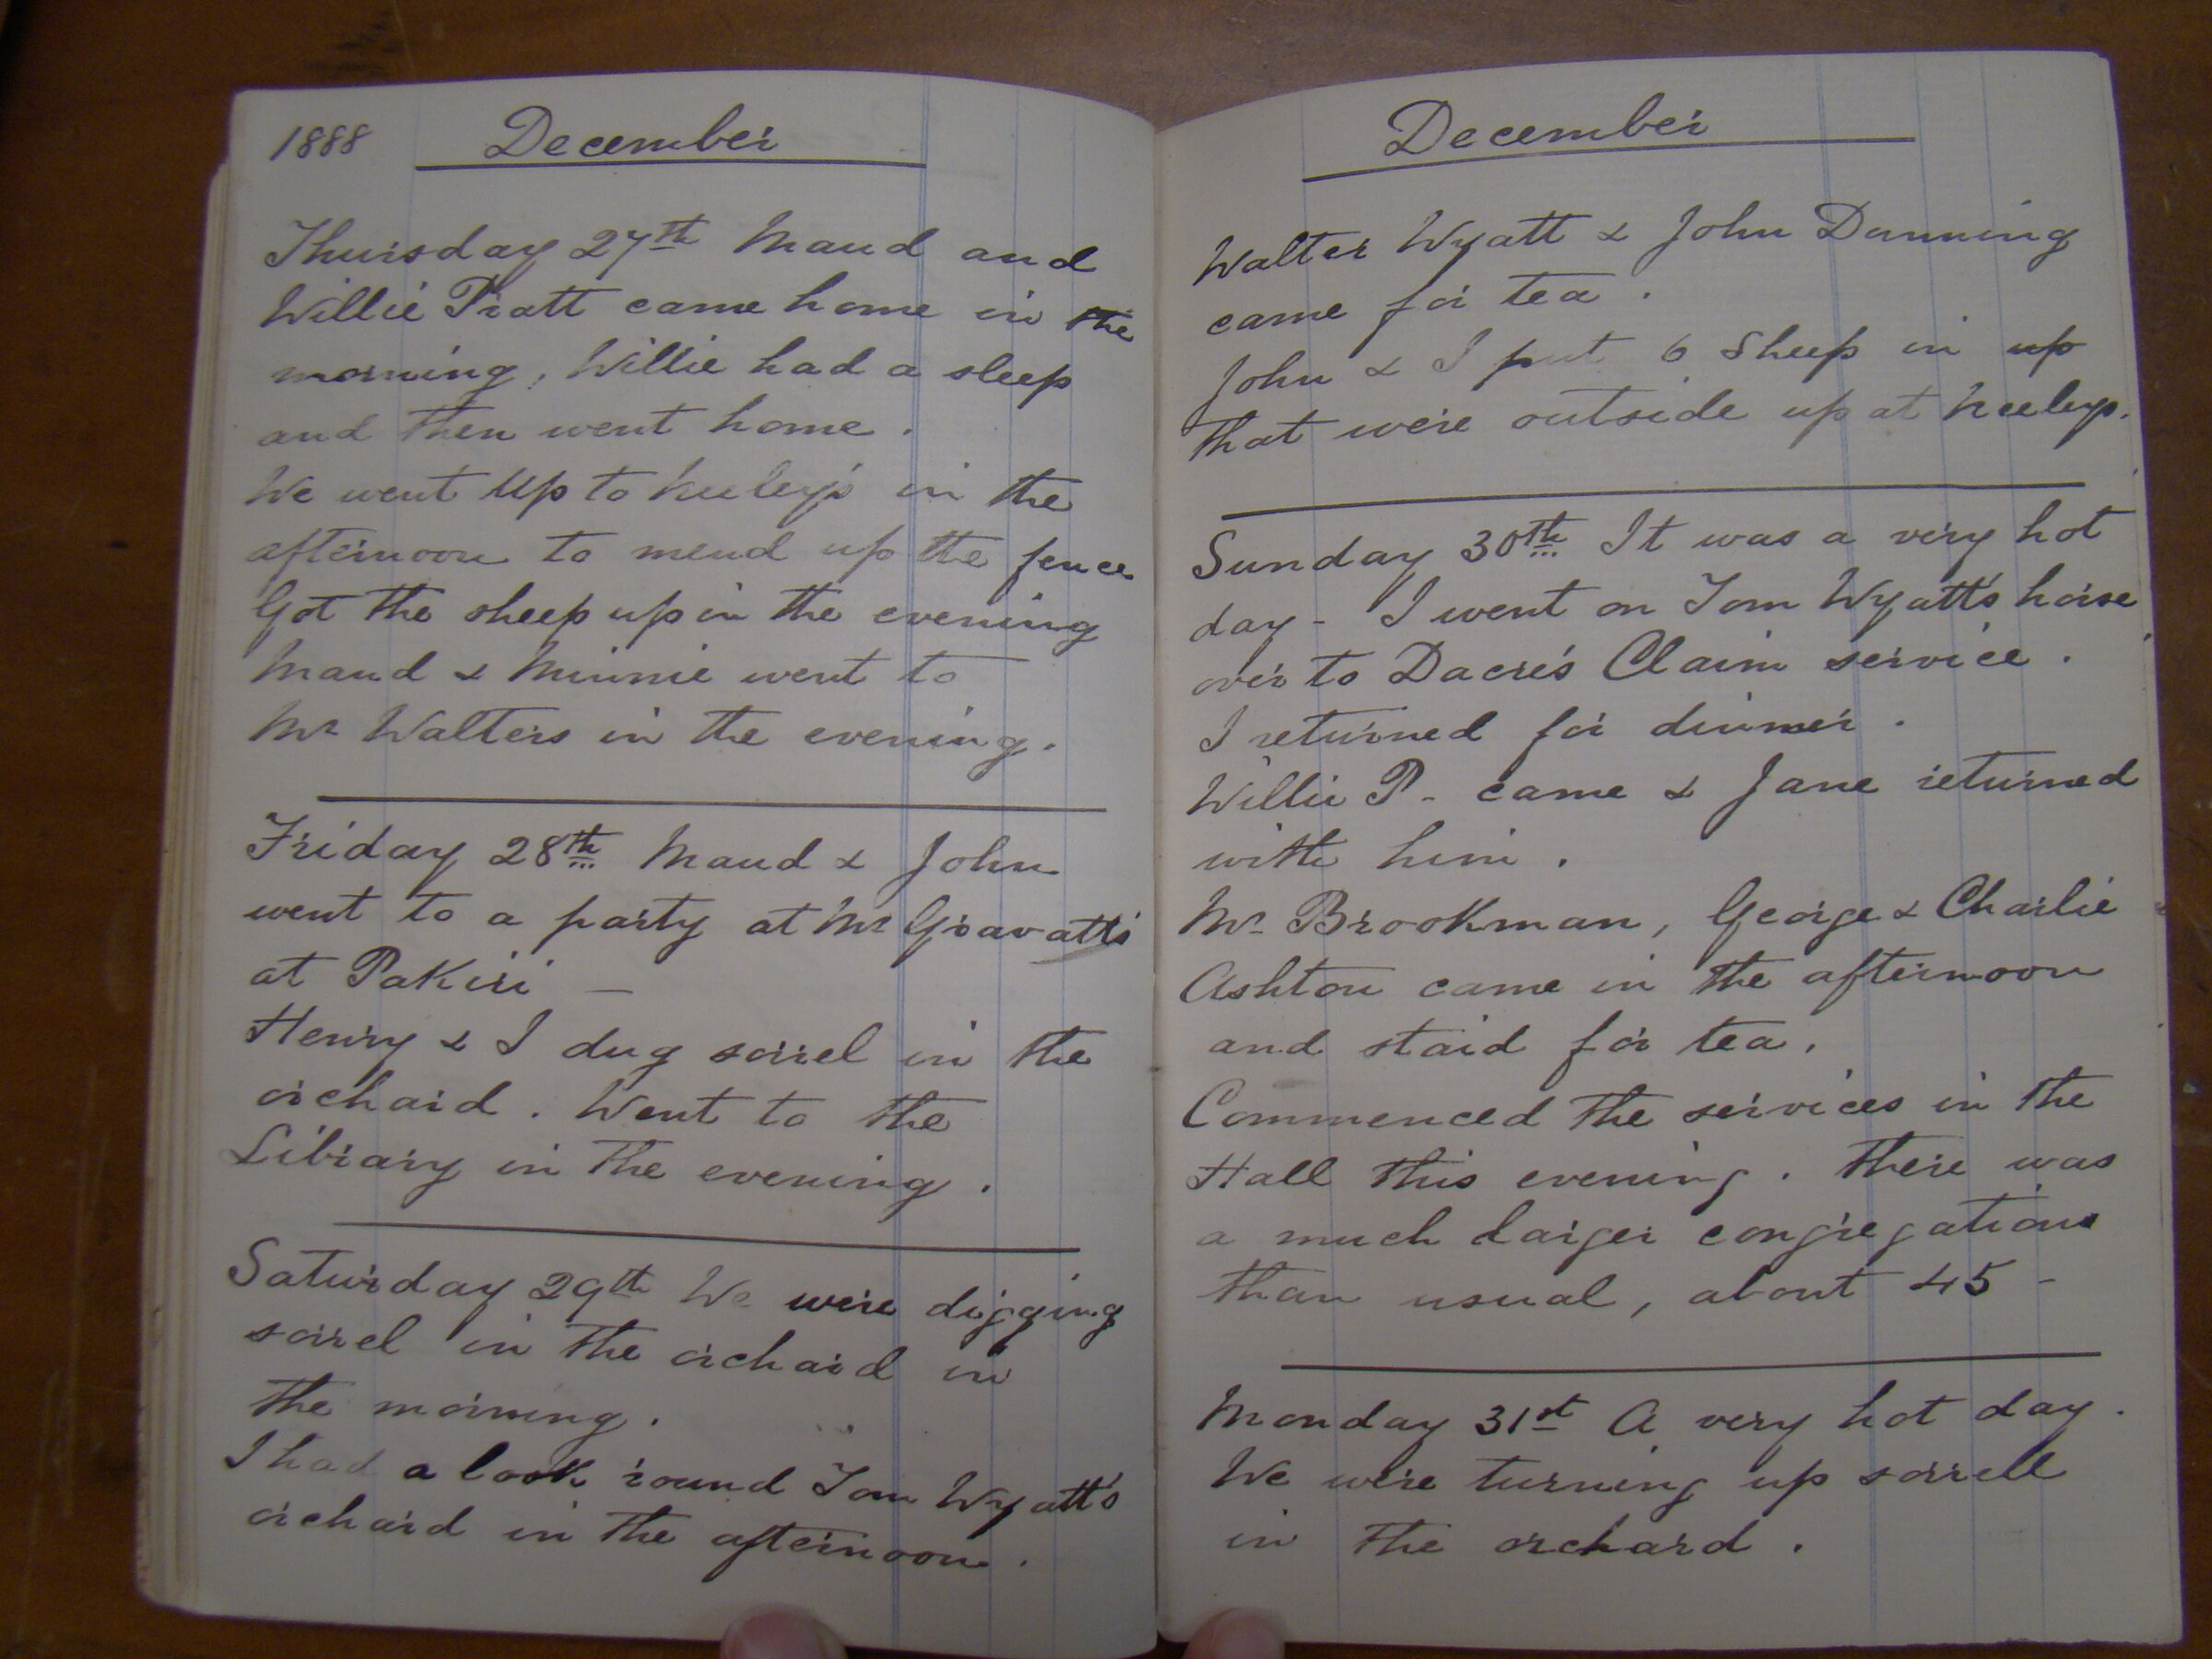 1888 December
Thursday 27th Maud and
Willie Pratt came home in the
morning, Willie had a sleep
and then went home.
We went up to Keeley's in the
afternoon to mend up the fence
Got the sheep up in the evening
Maud & Minnie went to
Mr Walters in the evening.
Friday 28th Maud & John
went to a party at Mr Gravatt's
at Pakiri —
Henry & I dug sorrel in the
orchard. Went to the
Library in the evening.
Saturday 29th We were digging
sorrel in the orchard in
the morning.
I had a look round Tom Wyatt's
orchard in the afternoon.
December
Walter Wyatt & John Dunning
came for tea.
John & I put 6 sheep in up
that were outside up at Keeleys.
Sunday 30th It was a very hot
day - I went on Tom Wyatt's horse
over to Dacre's Claim service.
I returned for dinner.
Willie P- came & Jane returned
with him.
Mr Brookman, George & Charlie
Ashton came in the afternoon
and staid for tea.
Commenced the services in the
Hall this evening. There was
a much larger congregation
than usual, about 45 -
Monday 31st A very hot day.
We were turning up sorrell
in the orchard.